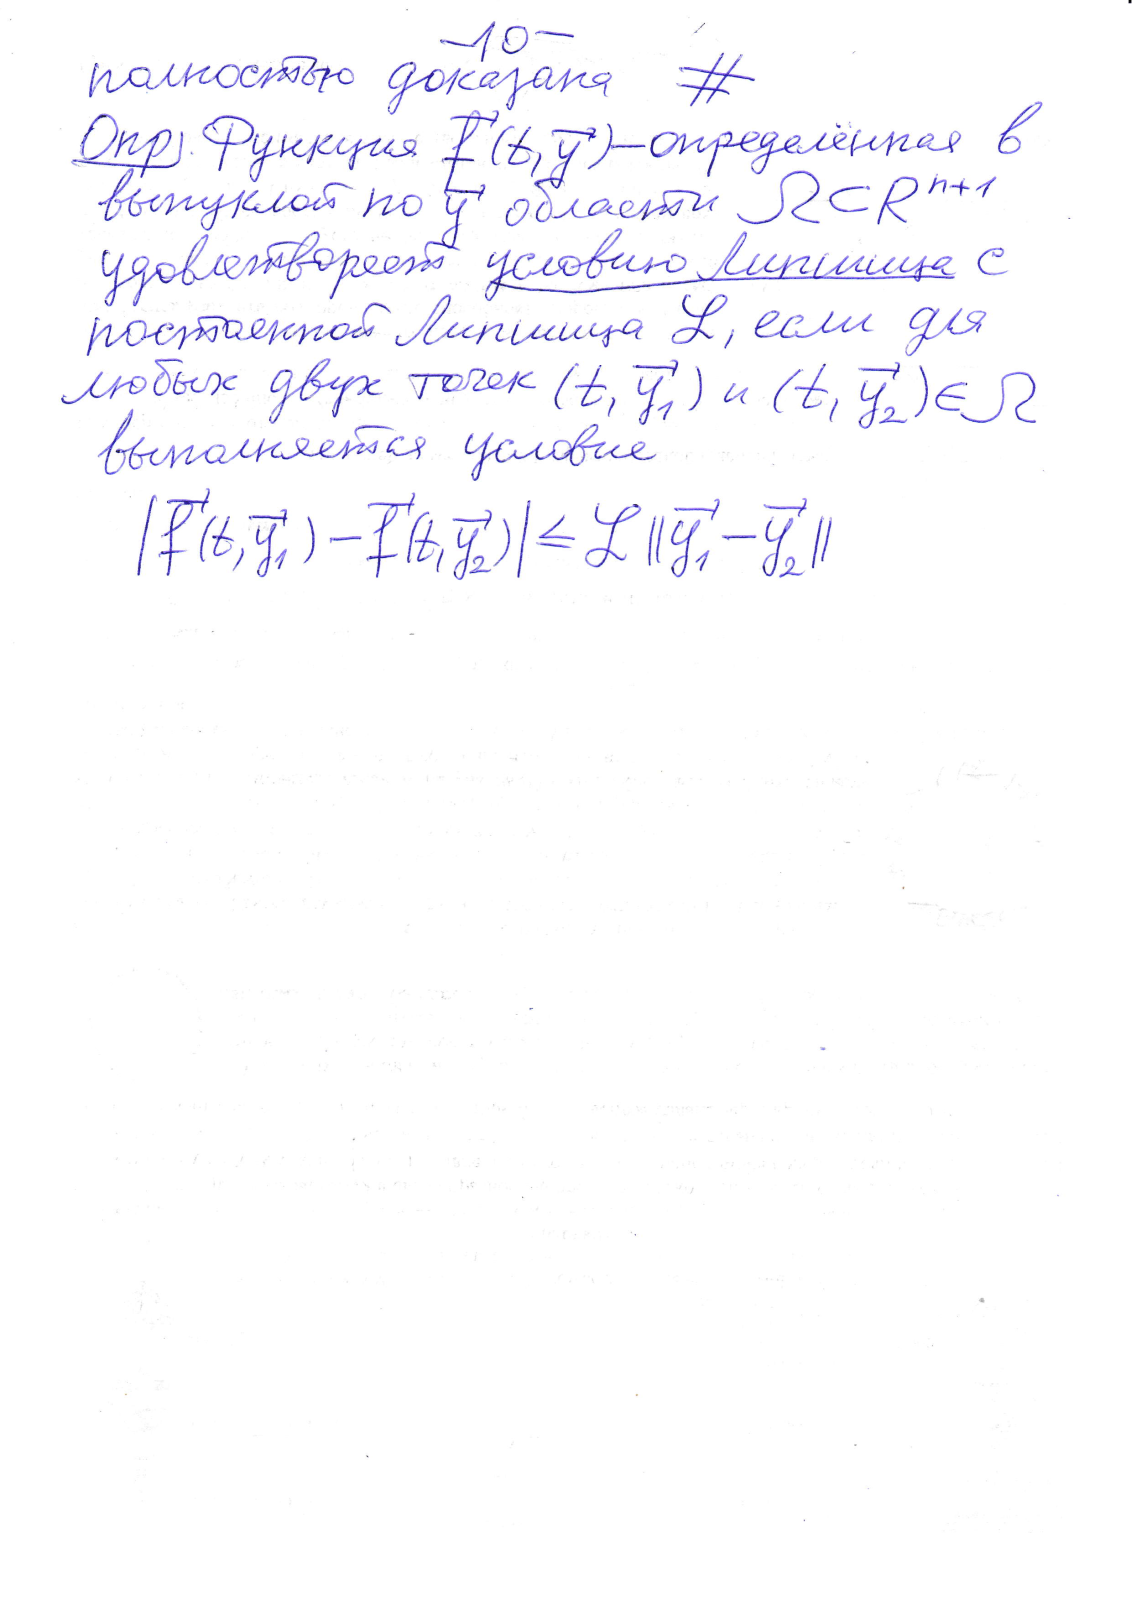 –10–
полностью доказана #
Опр. Функция f⃗(t, y⃗) – определённая в
выпуклой по y⃗ области Ω ⊂ R^{n+1}
удовлетворяет условию Липшица с
постоенной Липшица L, если для
любых двух точек (t, y⃗₁) и (t, y⃗₂) ∈ Ω
выполняется условие
|f⃗(t, y⃗₁) – f⃗(t, y⃗₂)| ≤ L ||y⃗₁ – y⃗₂||